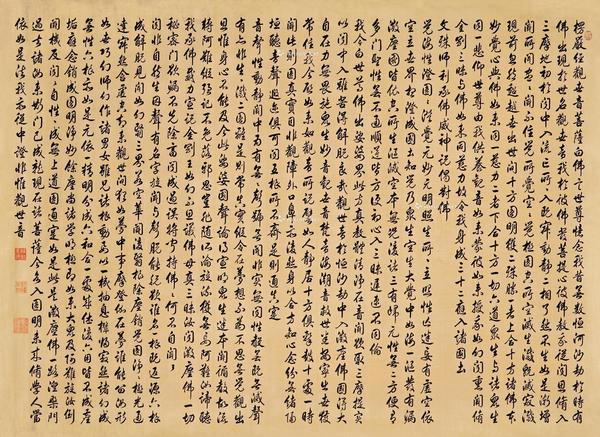 楞嚴經觀世音菩薩白佛言世尊憶念我昔無數恒河沙劫於時有
佛出現於世名觀世音我於彼佛發菩提心彼佛教我從聞思修入
三摩地初於聞中入流亡所所入既寂動靜二相了然不生如是漸增
聞所聞盡盡聞不住覺所覺空空覺極圓空所空滅生滅既滅寂滅
現前忽然超越世出世間十方圓明獲二殊勝一者上合十方諸佛本
妙覺心與佛如來同一慈力二者下合十方一切六道眾生與諸眾生
同一悲仰世尊由我供養觀音如來蒙彼如來授我如幻聞熏聞修
金剛三昧與佛如來同慈力故令我身成三十二應入諸國土
文殊師利承佛威神說偈對佛
覺海性澄圓圓澄覺元妙元明照生所所立照性亡迷妄有虛空依
空立世界想澄成國土知覺乃眾生空生大覺中如海一漚發有漏
微塵國皆依空所生漚滅空本無況復諸三有歸元性無二方便有
多門聖性無不通順逆皆方便初心入三昧遲速不同倫
我今白世尊佛出娑婆界此方真教體清淨在音聞欲取三摩提實
以聞中入離苦得解脫良哉觀世音於恒沙劫中入微塵佛國得大
自在力無畏施眾生妙音觀世音梵音海潮音救世悉安寧出世獲
常住我今啟如來如觀音所說譬如人靜居十方俱擊鼓十處一時
聞此則圓真實目非觀障外口鼻亦復然身以合方知心念紛無緒隔
垣聽音響遐邇俱可聞五根所不齊是則通真實
音聲性動靜聞中為有無無聲號無聞非實聞無性聲無既無滅聲
有亦非生生滅二圓離是則常真實縱令在夢想不為不思無覺觀出
思惟身心不能及今此娑婆國聲論得宣明眾生迷本聞循聲故流
轉阿難縱強記不免落邪思豈非隨所淪旋流獲無妄阿難汝諦聽
我承佛威力宣說金剛王如幻不思議佛母真三昧汝聞微塵佛一切
秘密門欲漏不先除畜聞成過誤將聞持佛佛何不自聞聞
聞非自然生因聲有名字旋聞與聲脫能脫欲誰名一根既返源六根
成解脫見聞如幻翳三界若空華聞復翳根除塵銷覺圓淨淨極光通
達寂照含虛空却來觀世間猶如夢中事摩登伽在夢誰能留汝形
如世巧幻師幻作諸男女雖見諸根動要以一機抽息機歸寂然諸幻成
無性六根亦如是元依一精明分成六和合一處成休復六用皆不成塵
垢應念銷成圓明淨妙餘塵尚諸學明極即如來大眾及阿難旋汝倒
聞機反聞聞自性性成無上道圓通實如是此是微塵佛一路涅槃門
過去諸如來斯門已成就現在諸菩薩今各入圓明未來修學人當
依如是法我亦從中證非惟觀世音